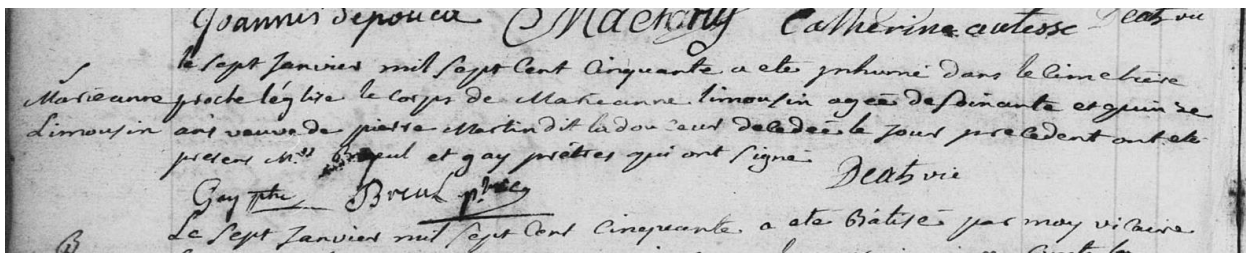 Joannis depouca Maetany Catherine autesse Deatz vic
le sept Janvier mil sept Cent Cinquante a eté ynhumé dans le Cimetière
Marieanne proche léglise le corps de Marieanne limousin agée de soixante et quinze
Limousin ans veuve de pierre Martin dit ladouceur decedeé le Jour precedent ont eté
presens Mrs Breuul et gay prêtres qui ont signé
Deatz vic
Gay ptre Breul ptre
Le Sept Janvier mil Sept Cent Cinquante a eté Bâtisé par moy vicaire
B